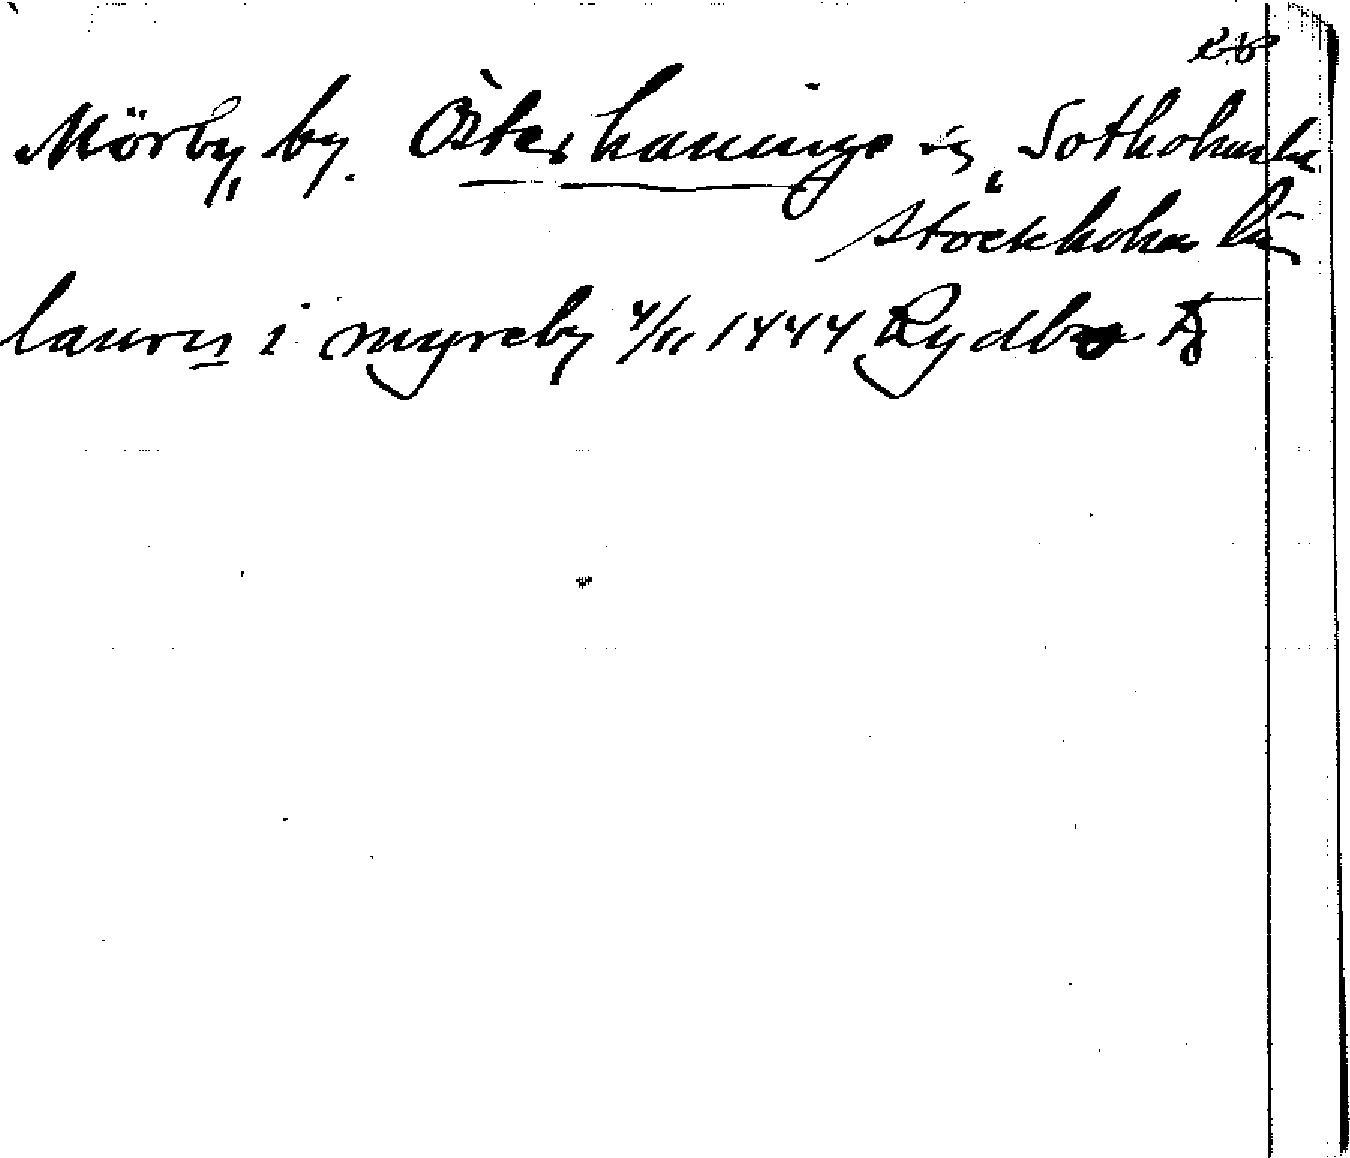 Mörby, by. Österhaninge Sotholms
Stockholms län
laurys i myreby 4/11 1444 Rydbo